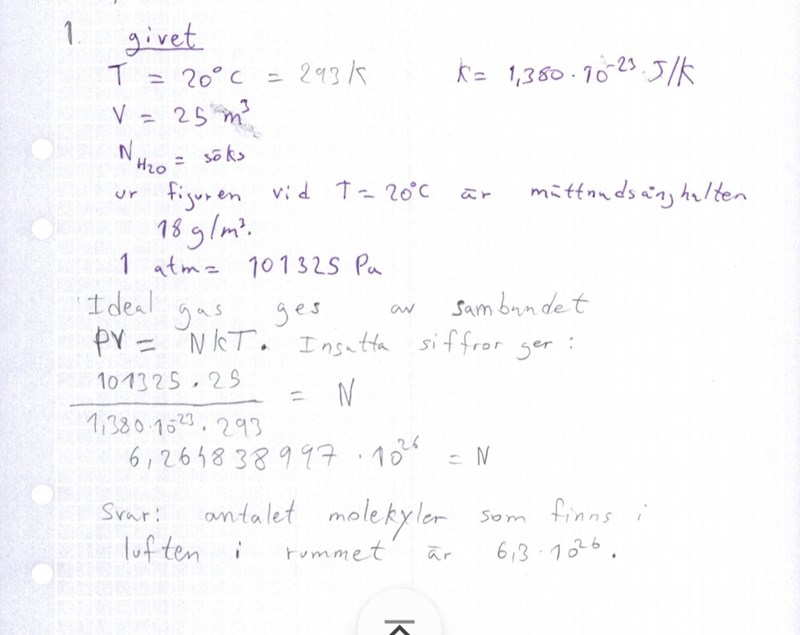 1. givet
T = 20°C = 293 K k = 1,380 · 10⁻²³ J/K
V = 25 m³
N_H2O = söks
ur figuren vid T = 20°C är mättnadsånghalten
18 g/m³.
1 atm = 101325 Pa
Ideal gas ges av sambandet
pV = NkT. Insatta siffror ger:
101325 · 25 / 1,380 · 10⁻²³ · 293 = N
6,264838997 · 10²⁶ = N
Svar: antalet molekyler som finns i
luften i rummet är 6,3 · 10²⁶.